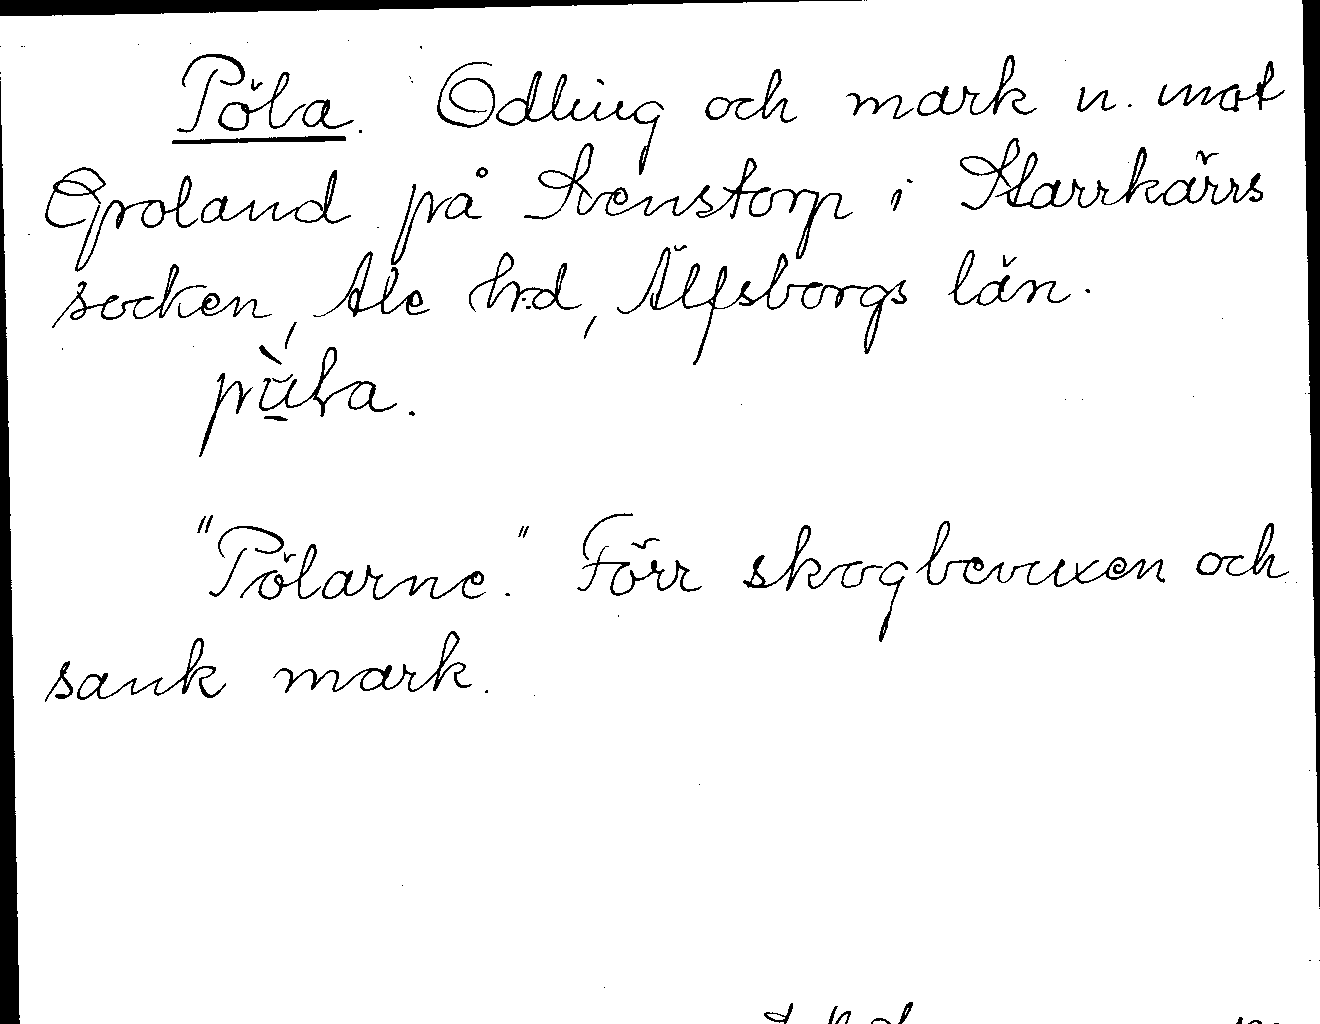 Pöla. Odling och mark n. mot
Groland på Svenstorp i Starrkärrs
socken, Ale hd, Älfsborgs län.
"Pölarne." Förr skogbevuxen och
sank mark.